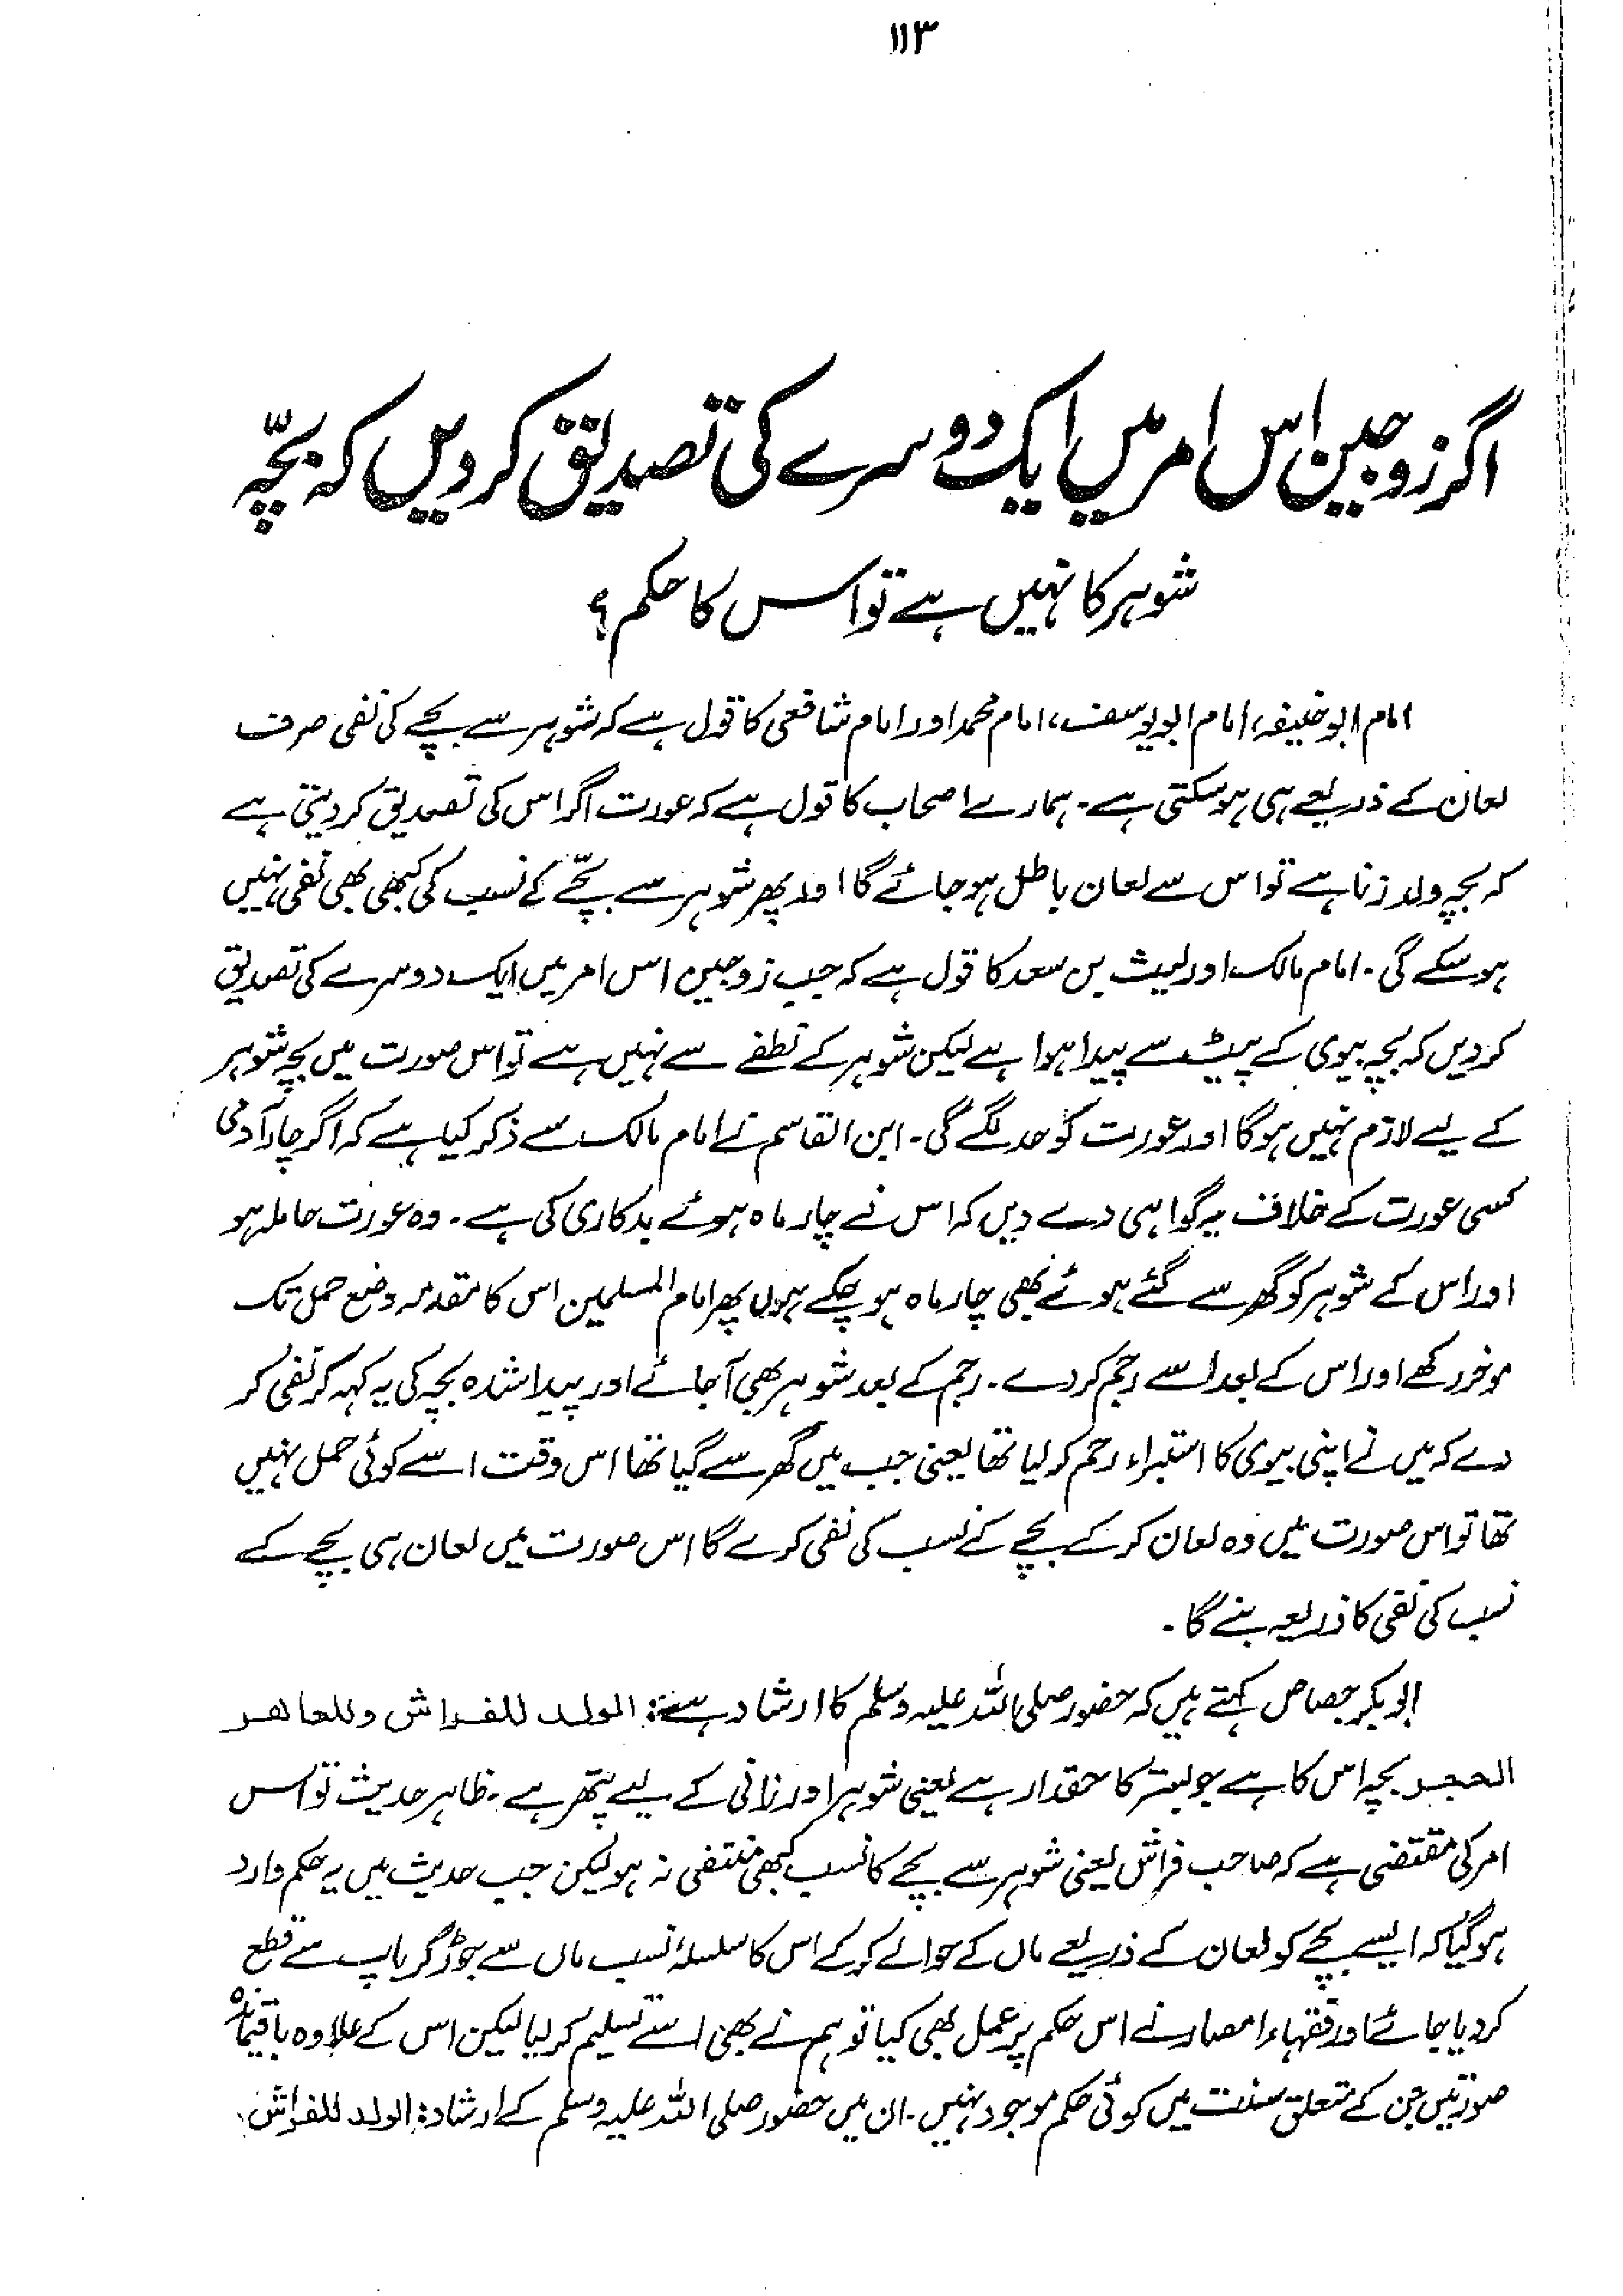 ۱۱۳
اگر زوجین اس امر میں ایک دوسرے کی تصدیق کر دیں کہ بچّہ
شوہر کا نہیں ہے تو اس کا حکم؟
امام ابو حنیفہ، امام ابو یوسف، امام محمد اور امام شافعی کا قول ہے کہ شوہر سے بچے کی نفی صرف
لعان کے ذریعے ہی ہو سکتی ہے۔ ہمارے اصحاب کا قول ہے کہ عورت اگر اس کی تصدیق کر دیتی ہے
کہ بچہ ولد زنا ہے تو اس سے لعان باطل ہو جائے گا اور پھر شوہر سے بچّے کے نسب کی کبھی بھی نفی نہیں
ہو سکے گی۔ امام مالک اور لیث بن سعد کا قول ہے کہ جب زوجین اس امر میں ایک دوسرے کی تصدیق
کر دیں کہ بچہ بیوی کے پیٹ سے پیدا ہوا ہے لیکن شوہر کے نطفے سے نہیں ہے تو اس صورت میں بچہ شوہر
کے لیے لازم نہیں ہوگا اور عورت کو حد لگے گی۔ ابن القاسم نے امام مالک سے ذکر کیا ہے کہ اگر چار آدمی
کسی عورت کے خلاف یہ گواہی دے دیں کہ اس نے چار ماہ ہوئے بدکاری کی ہے۔ وہ عورت حاملہ ہو
اور اس کے شوہر کو گھر سے گئے ہوئے بھی چار ماہ ہو چکے ہوں پھر امام المسلمین اس کا مقدمہ وضع حمل تک
موخر رکھے اور اس کے بعد اسے رجم کر دے۔ رجم کے بعد شوہر بھی آ جائے اور پیدا شدہ بچہ کی یہ کہہ کر نفی کر
دے کہ میں نے اپنی بیوی کا استبراء رحم کر لیا تھا یعنی جب میں گھر سے گیا تھا اس وقت اسے کوئی حمل نہیں
تھا تو اس صورت میں وہ لعان کر کے بچے کے نسب کی نفی کرے گا اس صورت میں لعان ہی بچے کے
نسب کی نفی کا ذریعہ بنے گا۔
ابو بکر جصاص کہتے ہیں کہ حضور صلی اللہ علیہ وسلم کا ارشاد ہے: الولد للفراش وللعاهر
الحجر بچہ اس کا ہے جو بستر کا حقدار ہے یعنی شوہر اور زانی کے لیے پتھر ہے۔ ظاہر حدیث تو اس
امر کی مقتضی ہے کہ صاحب فراش یعنی شوہر سے بچے کا نسب کبھی منتفی نہ ہو لیکن جب حدیث میں یہ حکم وارد
ہو گیا کہ ایسے بچے کو لعان کے ذریعے ماں کے حوالے کر کے اس کا سلسلۂ نسب ماں سے جوڑ کر باپ سے قطع
کر دیا جائے اور فقہاء امصار نے اس حکم پر عمل بھی کیا تو ہم نے بھی اسے تسلیم کر لیا لیکن اس کے علاوہ باقیماندہ
صورتیں جن کے متعلق سنت میں کوئی حکم موجود نہیں۔ ان میں حضور صلی اللہ علیہ وسلم کے ارشاد: الولد للفراش،